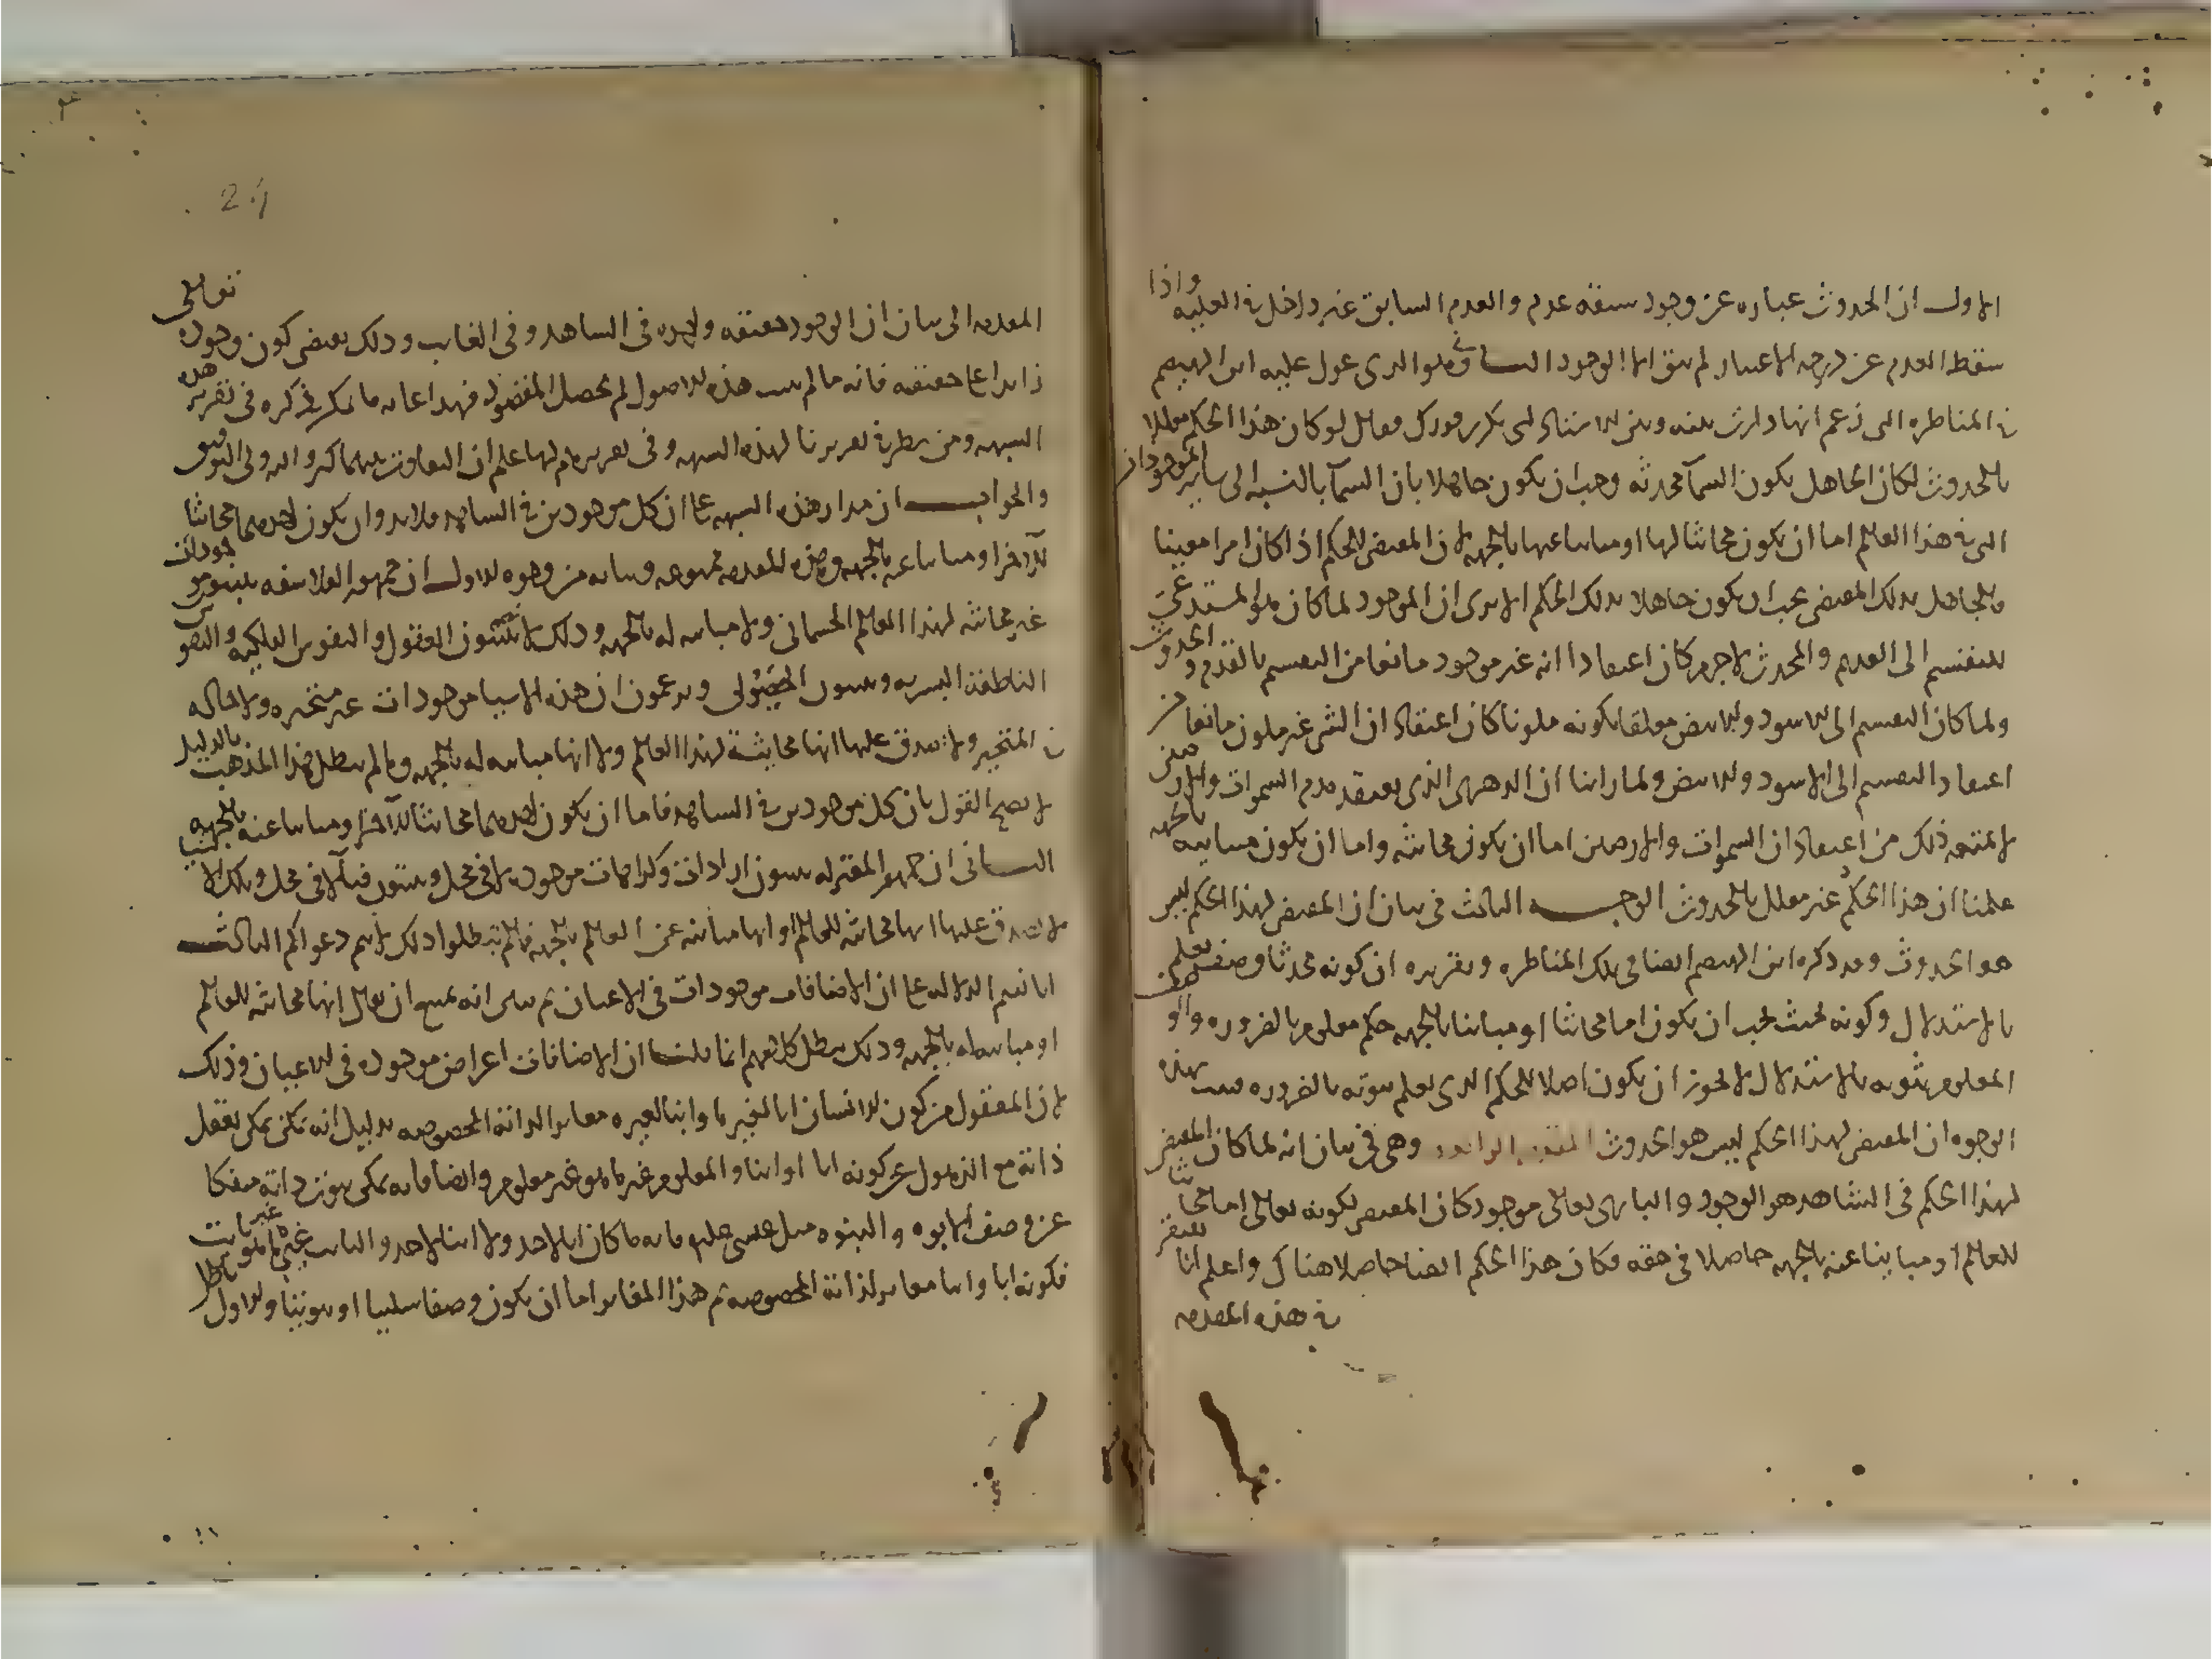 الاول ان الحدوث عباره عن وجود سبقه عدم والعدم السابق غير داخل في العليه واذا
سقط العدم عن درجه الاعتبار لم يبق الا الوجود الثاني وهو الذي عول عليه ابن الهيصم
في المناطره التي زعم انها دارت بينه وبين الاستاذ ابي بكر بن فورك فقال لو كان هذا الحكم معللا
بالحدوث لكان الجاهل بكون السما محدثه وجب ان يكون جاهلا بان السما بالنسبه الى ساير الموجودات
التي في هذا العالم اما ان يكون محايثا لها او مباينا عنها بالجهه لان المقتضى للحكم اذا كان امرا معينا
فالجاهل بذلك المقتضى يجب ان يكون جاهلا بذلك الحكم الا يرى ان الموجود لما كان هو المستدعي
للتقسيم الى القديم والمحدث لا جرم كان اعتقاد انه غير موجود مانعا من التقسيم بالقدم والحدوث
ولما كان التقسيم الى الاسود والابيض معلقا بكونه ملونا كان اعتقاد ان الشي غير ملون مانعا من
اعتقاد التقسيم الى الاسود والابيض ولما راينا ان الدهري الذي يعتقد قدم السموات والارضين
لا يمنعه ذلك من اعتقاد ان السموات والارضين اما ان يكون محايثه واما ان يكون مباينه بالجهه
علمنا ان هذا الحكم غير معلل بالحدوث الوجه الثالث في بيان ان المقتضى لهذا الحكم ليس
هو الحدوث وقد ذكره ابن الهيصم ايضا في تلك المناطره وتقريره ان كونه محدثا وصف يعلم
بالاستدلال وكونه بحيث يجب ان يكون اما محايثا او مباينا بالجهه حكم معلوم بالضروره والوصف
المعلوم ثبوته بالاستدلال لا يجوز ان يكون اصلا للحكم الذي يعلم ثبوته بالضروره فثبت بهذه
الوجوه ان المقتضى لهذا الحكم ليس هو الحدوث المقدمه الرابعه وهي في بيان انه لما كان المقتضى
لهذا الحكم في الشاهد هو الوجود والباري تعالى موجود كان المقتضى لكونه تعالى اما محايثا
للعالم او مباينا عنه بالجهه حاصلا في حقه فكان هذا الحكم ايضا حاصلا هناك واعلم انا نفتقر
في هذه المقدمه
24
المقدمه الى بيان ان الوجود حقيقه واحده في الشاهد وفي الغايب وذلك يقتضى كون وجوده تعالى
زايدا على حقيقته فانه ما لم يثبت هذه الاصول لم يحصل المقصود فهذا غايه ما يمكن ذكره في تقرير هذه
الشبهه ومن نظر في تقريرنا لهذه الشبهه وفي تقريرهم لها علم ان التفاوت بينهما كبير والله ولي التوفيق
والجواب ان مدار هذه الشبهه على ان كل موجودين في الشاهد فلا بد وان يكون احدهما محايثا
للاخر او مباينا عنه بالجهه وهذه المقدمه ممنوعه وبيانه من وجوه الاول ان جمهور الفلاسفه يثبتون موجودات
غير محايثه لهذا العالم الجسماني ولا مباينه له بالجهه وذلك لانهم يثبتون العقول والنفوس الفلكيه والنفوس
الناطقه البشريه ويثبتون الهيولى ويزعمون ان هذه الاشيا موجودات غير متحيزه ولا حاله
في المتحيز ولا يصدق عليها انها محايثة لهذا العالم ولا انها مباينه له بالجهه وما لم يبطل هذا المذهب بالدليل
لا يصح القول بان كل موجودين في الشاهد فاما ان يكون احدهما محايثا للاخر او مباينا عنه بالجهه
الثاني ان جمهور المعتزله يثبتون ارادات وكراهات موجوده لا في محل ويثبتون فنا لا في محل وتلك الاشيا
لا يصدق عليها انها محايثه للعالم او انها مباينه عن العالم بالجهه فما لم تبطلوا ذلك لا يتم دعواكم الثالث
انا نقيم الدلاله على ان الاضافات موجودات في الاعيان ثم نبين انه يمتنع ان يقال انها محايثه للعالم
او مباينه له بالجهه وذلك يبطل كلامهم انما قلنا ان الاضافات اعراض موجوده في الاعيان وذلك
لان المعقول من كون الانسان ابا لغيره او ابنا لغيره مغاير لذاته المخصوصه بدليل انه يمكن تعقل
ذاته مع الذهول عن كونه ابا او ابنا والمعلوم غير ما هو غير معلوم وايضا فانه يمكن ثبوت ذاته منفكا
عن وصف الابوه والبنوه مثل عيسى عليه فانه ما كان ابا لاحد ولا ابنا لاحد والثابت غير ما هو غير ثابت
فكونه ابا وابنا مغاير لذاته المخصوصه ثم هذا المغاير اما ان يكون وصفا سلبيا او ثبوتيا والاول باطل